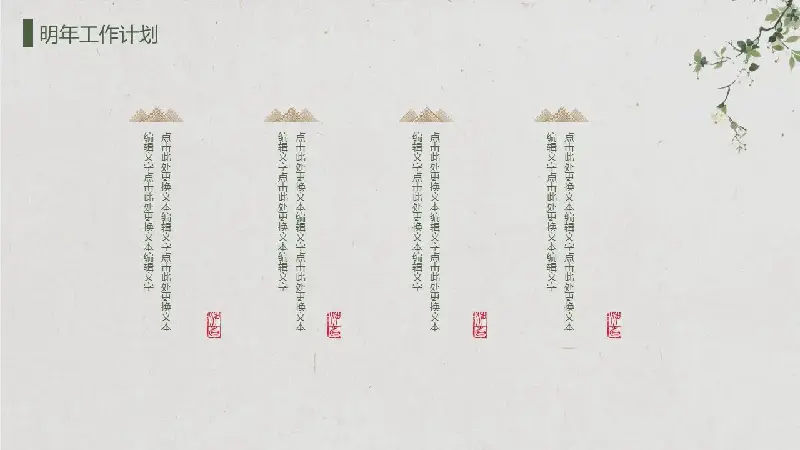 明年工作计划
点击此处更换文本编辑文字点击此处更换文本
编辑文字点击此处更换文本编辑文字
点击此处更换文本编辑文字点击此处更换文本
编辑文字点击此处更换文本编辑文字
点击此处更换文本编辑文字点击此处更换文本
编辑文字点击此处更换文本编辑文字
点击此处更换文本编辑文字点击此处更换文本
编辑文字点击此处更换文本编辑文字